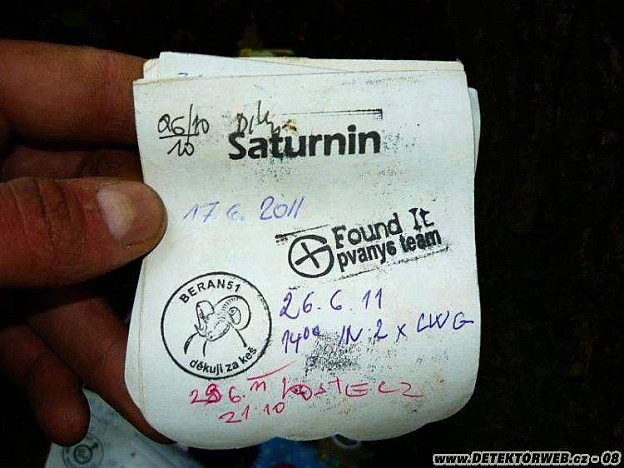 26/10
10
Saturnin
17.6. 2011
Found It
pvanys team
BERAN51
děkuji za keš
26.6.11
14⁰⁰ IN: 2 x CWG
21 10
www.DETEKTORWEB.cz - 08